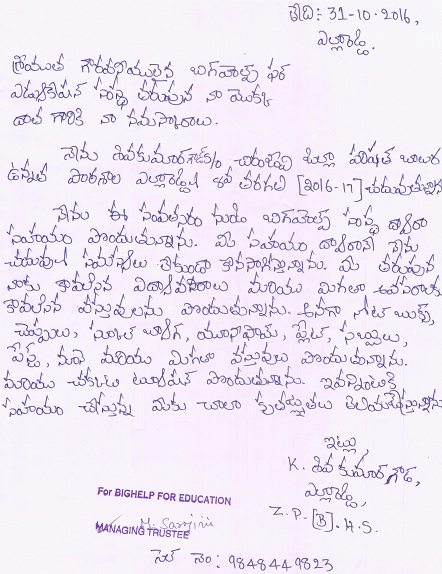 తేది: 31-10-2016,
ఎల్లారెడ్డి.
శ్రీయుత గౌరవనీయులైన బిగ్‌హెల్ప్ ఫర్
ఎడ్యుకేషన్ సంస్థ తరుపున నా యొక్క
దాత గారికి నా నమస్కారాలు.
నేను శివకుమార్ గౌడ్ జిల్లా పరిషత్ బాలుర
ఉన్నత పాఠశాల ఎల్లారెడ్డి తరగతి [2016-17] చదువుతున్నాను
నేను ఈ సంవత్సరం నుండి బిగ్‌హెల్ప్ సంస్థ ద్వారా
సహాయం పొందుతున్నాను. మీ సహాయం ద్వారానే నేను
చదువును సమస్యలు లేకుండా కొనసాగిస్తున్నాను. మీ తరుపున
నాకు కావలసిన మరియు మిగతా అవసరాలకు
కావలసిన వస్తువులను పొందుతున్నాను. అనగా నోట్ బుక్స్,
చెప్పులు, స్కూల్ బ్యాగ్, యూనిఫామ్, ప్లేట్, సబ్బులు,
పేస్ట్, నూనె మరియు మిగతా వస్తువులు పొందుతున్నాను.
మరియు చక్కటి ట్యూషన్ పొందుతున్నాను. ఇవన్నింటికి
సహాయం చేస్తున్న మీకు చాలా కృతజ్ఞతలు తెలియజేస్తున్నాను
ఇట్లు
K. శివకుమార్ గౌడ్,
ఎల్లారెడ్డి,
Z.P.[B].H.S.
For BIGHELP FOR EDUCATION
MANAGING TRUSTEE
సెల్ నెం: 9848449823